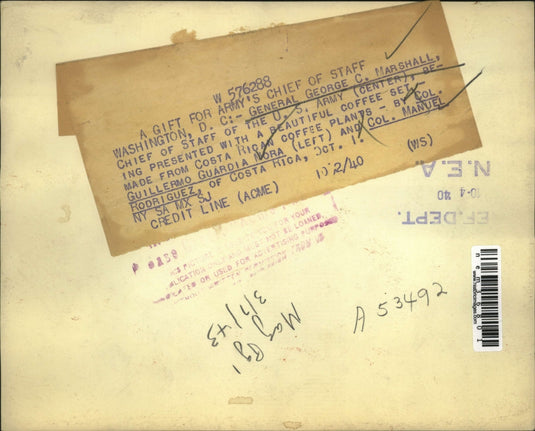 W 576288
A GIFT FOR ARMY'S CHIEF OF STAFF
WASHINGTON, D. C:- GENERAL GEORGE C. MARSHALL,
CHIEF OF STAFF OF THE U. S. ARMY (CENTER), BE-
ING PRESENTED WITH A BEAUTIFUL COFFEE SET -
MADE FROM COSTA RICAN COFFEE PLANTS - BY COL.
GUILLERMO GUARDIA MORA (LEFT) AND COL. MANUEL
RODRIGUEZ, OF COSTA RICA, OCT. 1.
NY SA MX SJ
CREDIT LINE (ACME) 10/2/40 (WS)
N.E.A.
10-4 40
REF. DEPT.
FOR YOUR
PUBLICATION ONLY AND MUST NOT BE LOANED,
OR USED FOR ADVERTISING PURPOSES
A 53492
3/1/43